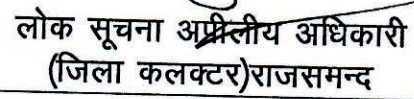 लोक सूचना अपीलीय अधिकारी
(जिला कलक्टर)राजसमन्द